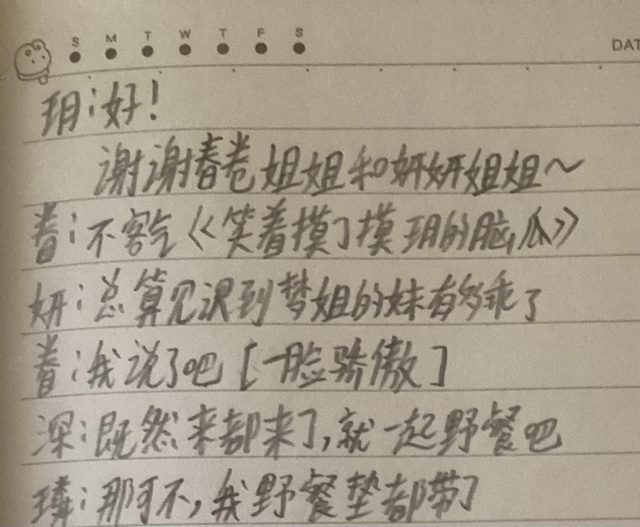 S M T W T F S DAT
玥:好!
谢谢春卷姐姐和妍妍姐姐~
春:不客气《笑着摸了摸玥的脑瓜》
妍:总算见识到梦姐的妹有多乖了
春:我说了吧[一脸骄傲]
深:既然来都来了,就一起野餐吧
璘:那可不,我野餐垫都带了